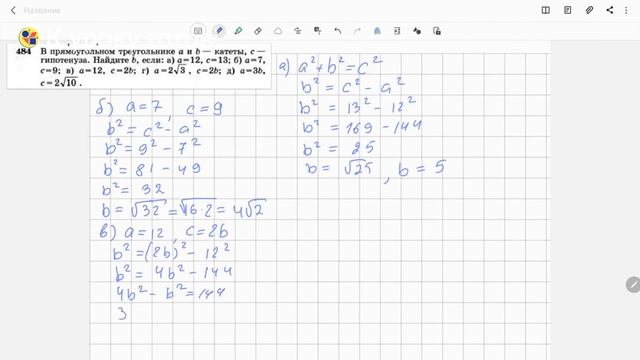 Название
484 В прямоугольном треугольнике a и b — катеты, c —
гипотенуза. Найдите b, если: а) a=12, c=13; б) a=7,
c=9; в) a=12, c=2b; г) a=2√3, c=2b; д) a=3b,
c=2√10.
а) a² + b² = c²
b² = c² - a²
b² = 13² - 12²
b² = 169 - 144
b² = 25
b = √25, b = 5
б) a = 7, c = 9
b² = c² - a²
b² = 9² - 7²
b² = 81 - 49
b² = 32
b = √32 = √16·2 = 4√2
в) a = 12, c = 2b
b² = (2b)² - 12²
b² = 4b² - 144
4b² - b² = 144
3